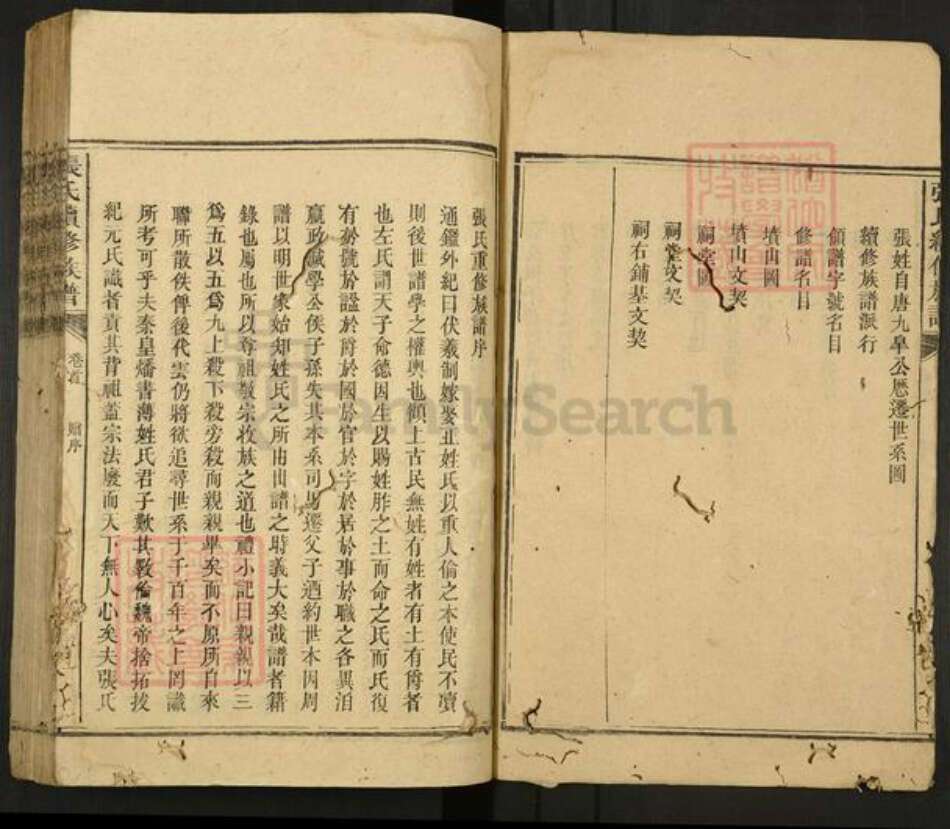 張姓自唐九皐公歷遷世系圖
續修族譜派行
領譜字號名目
修譜名目
墳山圖
墳山文契
祠堂圖
祠堂文契
祠右鋪基文契
張氏重修族譜序
通鑑外紀曰伏羲制嫁娶正姓氏以重人倫之本使民不瀆
則後世譜學之權輿也顧上古民無姓有姓者有土有爵者
也左氏謂天子命德因生以賜姓胙之土而命之氏而氏復
有於號於諡於爵於國於官於字於居於事於職之各異洎
嬴政滅學公侯子孫失其本系司馬遷父子迺約世本因周
譜以明世家始知姓氏之所由出譜之時義大矣哉譜者籍
錄也屬也所以尊祖敬宗收族之道也禮小記曰親親以三
爲五以五爲九上殺下殺旁殺而親親畢矣而不原所自來
聯所散佚俾後代雲仍將欲追尋世系于千百年之上罔識
所考可乎夫秦皇燔書薄姓氏君子歎其斁倫魏帝捨拓拔
紀元氏識者責其背祖蓋宗法廢而天下無人心矣夫張氏
張氏續修族譜
卷首
贈序
FamilySearch